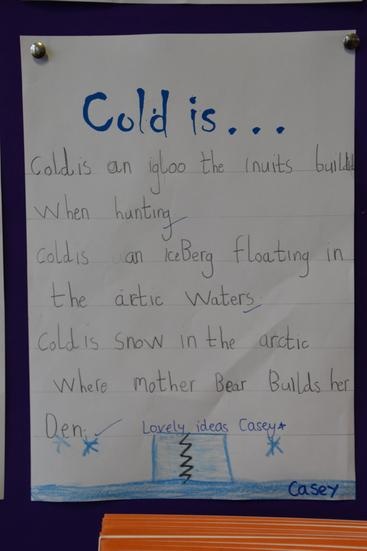 Cold is...
Cold is an igloo the inuits build
When hunting
Cold is an IceBerg floating in
the artic Waters.
Cold is snow in the arctic
Where mother Bear Builds her
Den.
Lovely ideas Casey
Casey